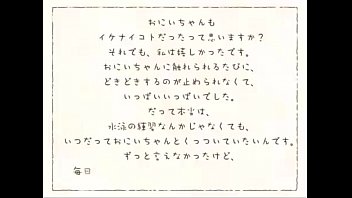 おにいちゃんも
イケナイコトだったって思いますか？
それでも、私は嬉しかったです。
おにいちゃんに触れられるたびに、
どきどきするのが止められなくて、
いっぱいいっぱいでした。
だって本当は、
水泳の練習なんかじゃなくても、
いつだっておにいちゃんとくっついていたいんです。
ずっと言えなかったけど、
毎日